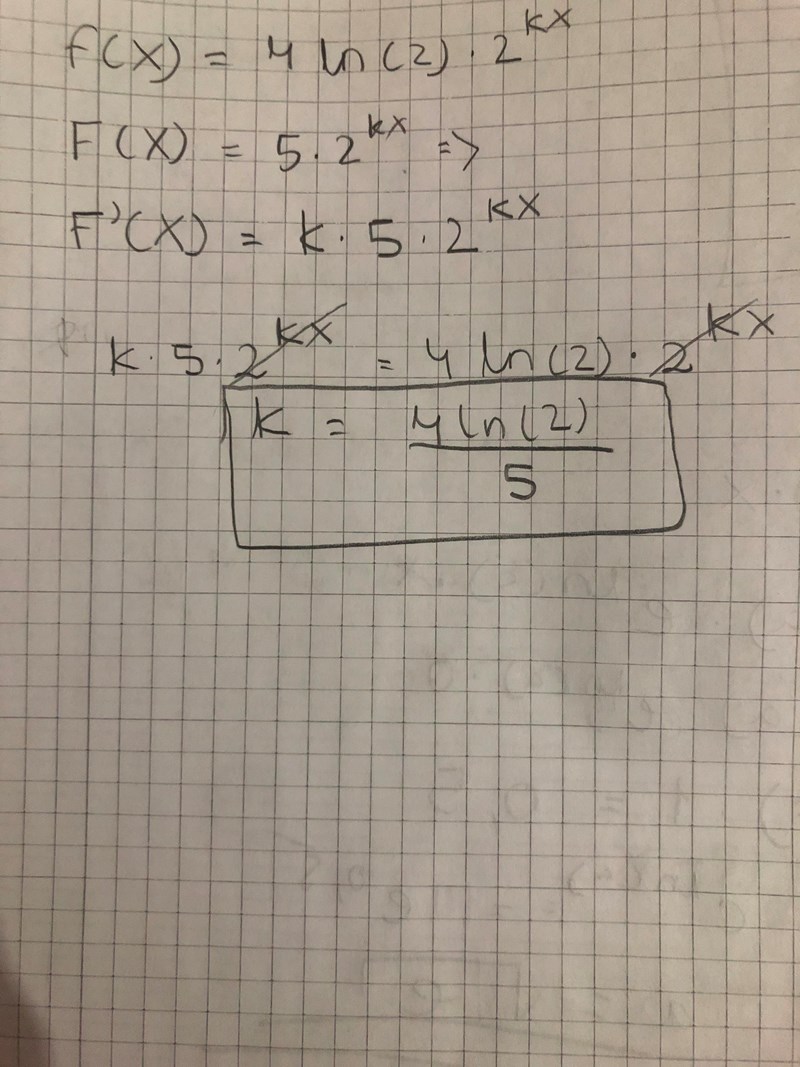 f(x) = 4 ln(2) · 2^kx
F(x) = 5 · 2^kx =>
F'(x) = k · 5 · 2^kx
k · 5 · 2^kx = 4 ln(2) · 2^kx
k = 4 ln(2) / 5